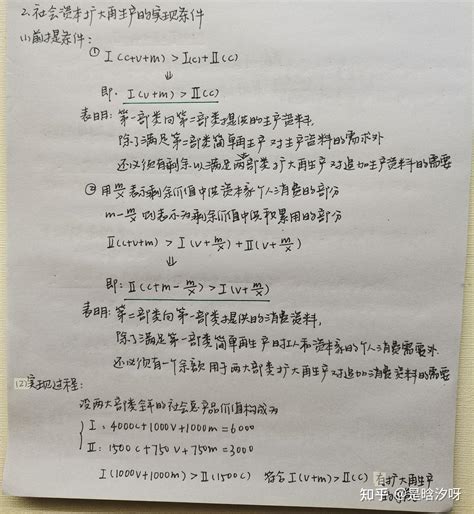 2.社会资本扩大再生产的实现条件
(1)前提条件:
① I(c+v+m)>I(c)+II(c)
⇓
即: I(v+m)>II(c)
表明:第一部类向第二部类提供的生产资料,
除了满足第二部类简单再生产对生产资料的需求外
还必须有剩余以满足两部类扩大再生产对追加生产资料的需要
② 用m/x表示剩余价值中供资本家个人消费的部分
m-m/x则表示为剩余价值中供积累用的部分
II(c+v+m)>I(v+m/x)+II(v+m/x)
⇓
即: II(c+m-m/x)>I(v+m/x)
表明:第二部类向第一部类提供的消费资料,
除了满足第一部类简单再生产时工人和资本家的个人消费需要外
还必须有一个余额用于两大部类扩大再生产对追加消费资料的需要
(2)实现过程:
设两大部类全年的社会总产品价值构成为
I:4000c+1000v+1000m=6000
II:1500c+750v+750m=3000
I(1000v+1000m)>II(1500c) 符合I(v+m)>II(c) 有扩大再生产
知乎 @是晗汐呀